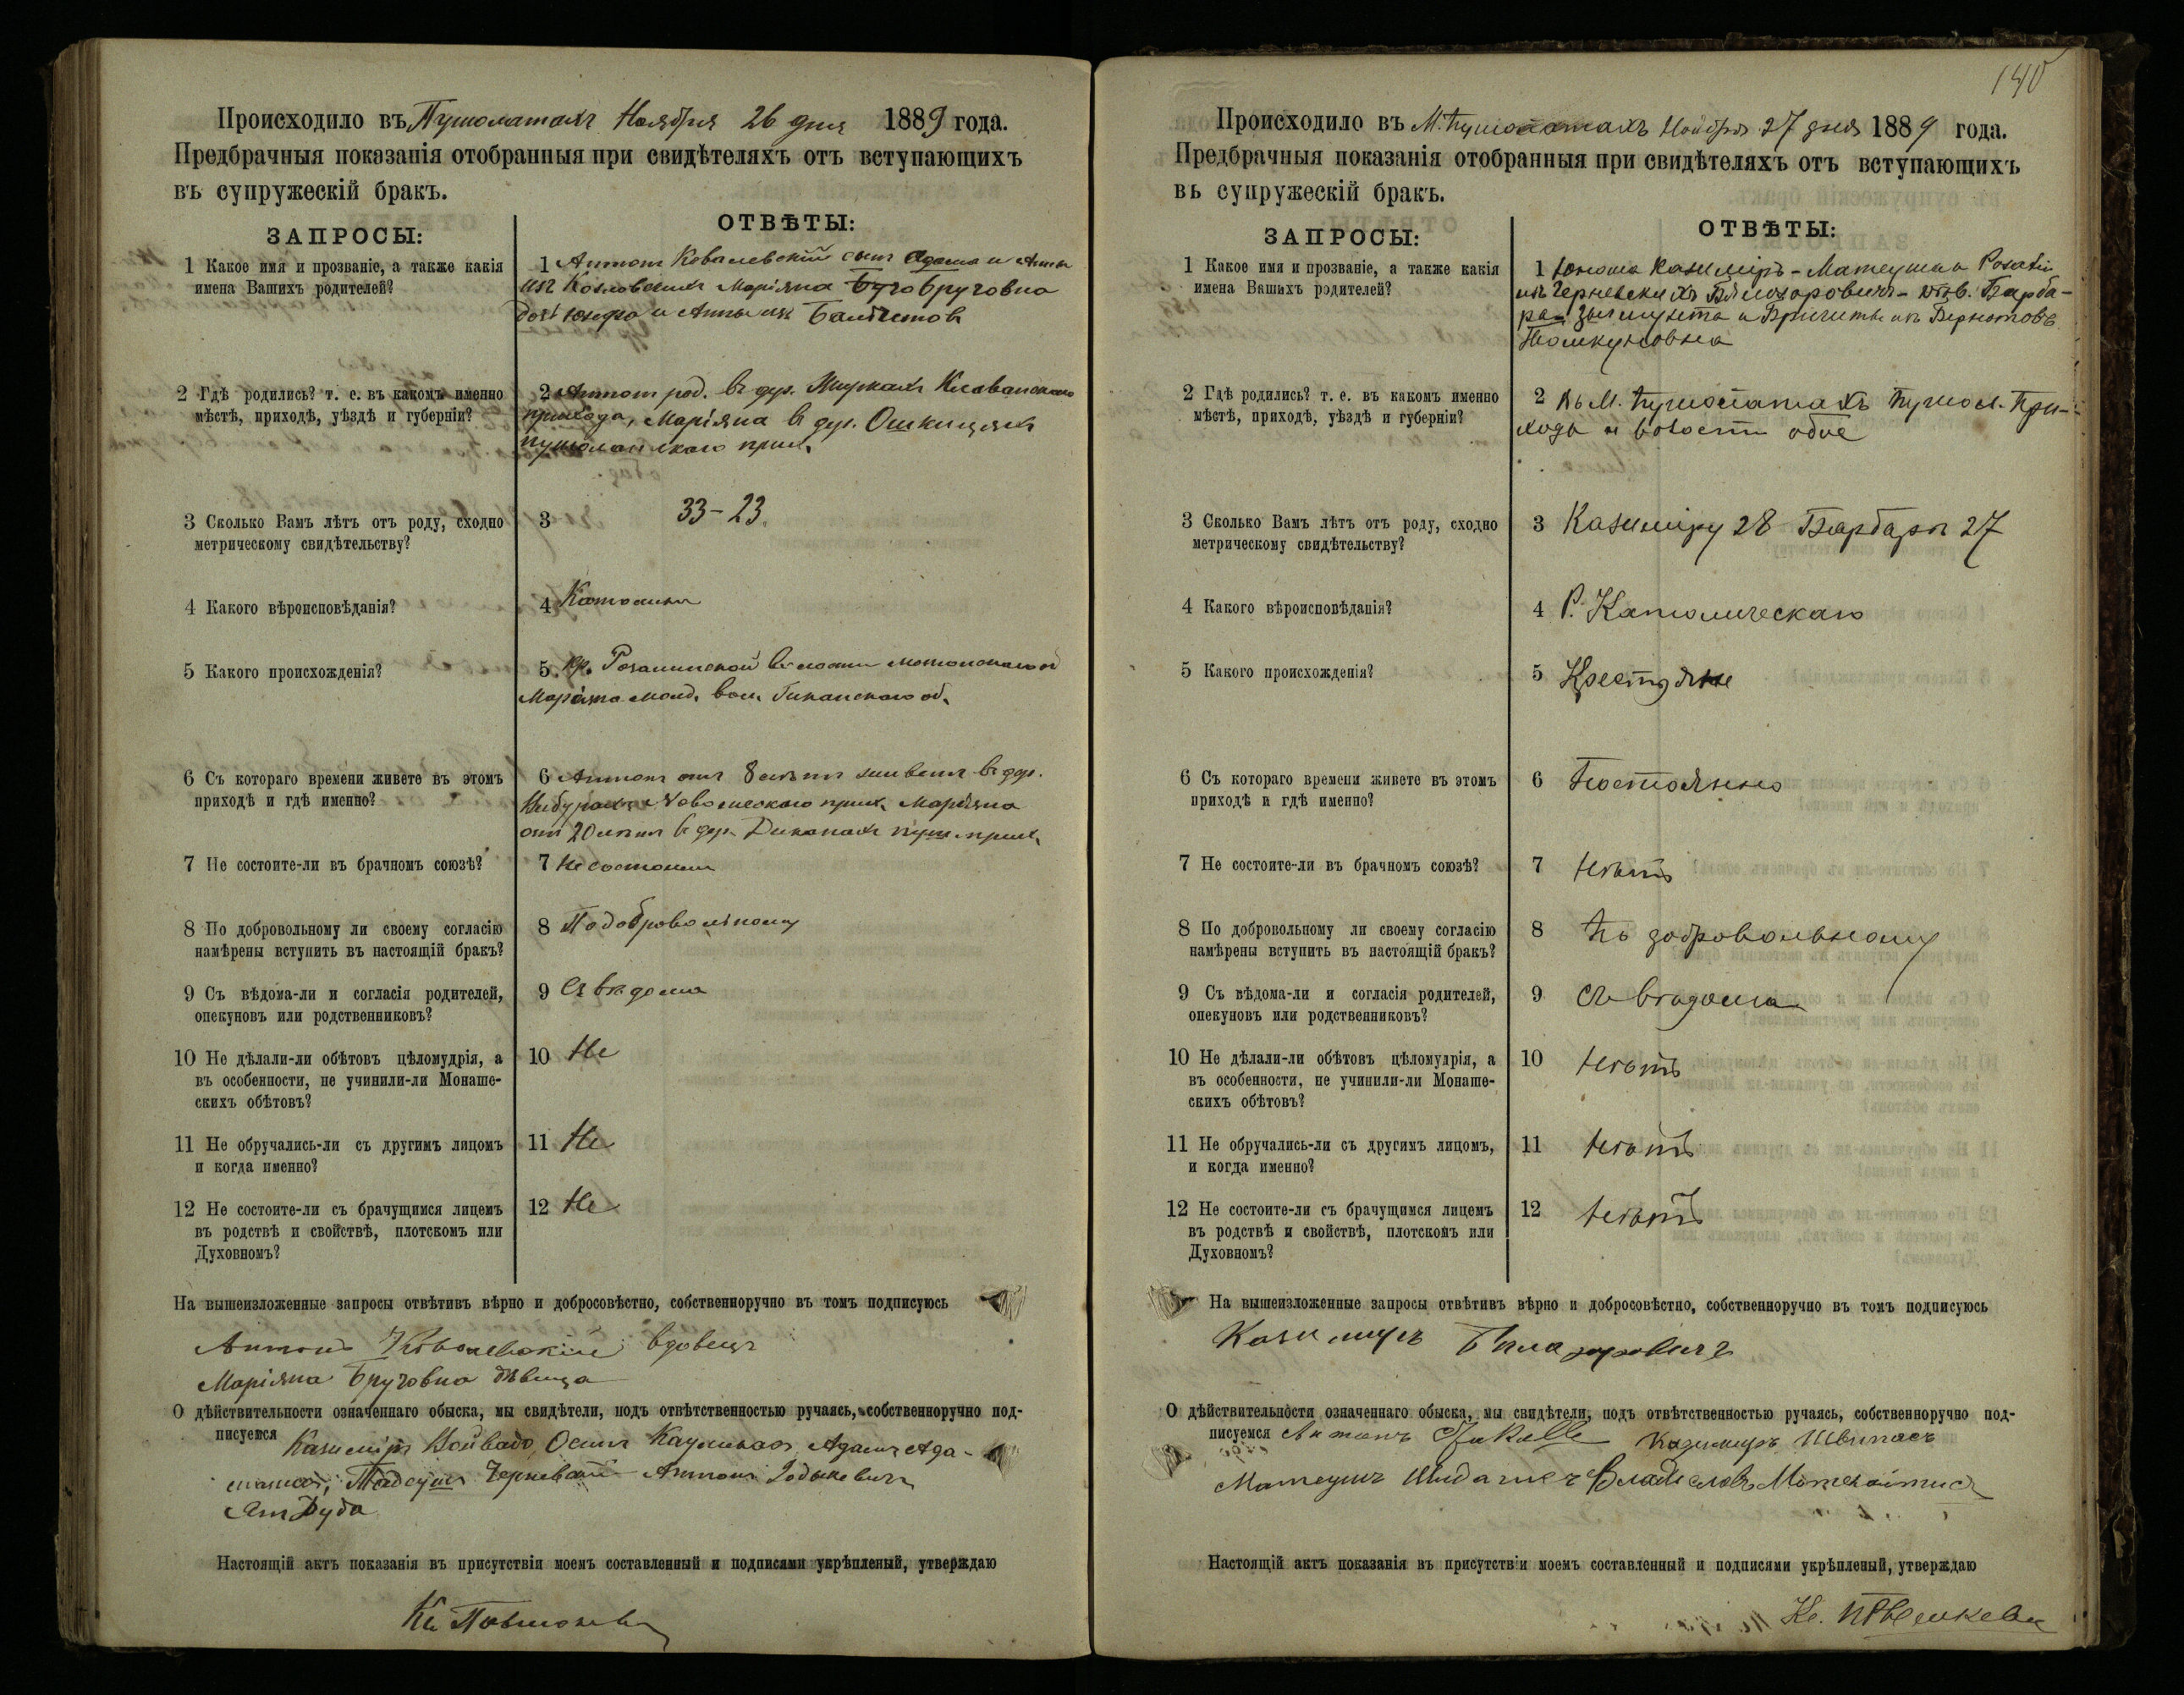 Происходило въ Пушолатахъ Ноября 26 дня 1889 года.
Предбрачныя показанія отобранныя при свидѣтеляхъ отъ вступающихъ
въ супружескій бракъ.
ЗАПРОСЫ:
ОТВѢТЫ:
1 Какое имя и прозваніе, а также какія
имена Вашихъ родителей?
1 Антонъ Ковалевскій сынъ Адама и Анны
изъ Козловскихъ Маріяна Бруговна
дочь Юзефа и Анны изъ
2 Гдѣ родились? т. е. въ какомъ именно
мѣстѣ, приходѣ, уѣздѣ и губерніи?
2 Антонъ род. въ дер.
прихода, Маріяна въ дер.
пушолатскаго прих.
3 Сколько Вамъ лѣтъ отъ роду, сходно
метрическому свидѣтельству?
3 33-23.
4 Какого вѣроисповѣданія?
4 Католики
5 Какого происхожденія?
5 кр. Розалинской волости
Маріяна
6 Съ котораго времени живете въ этомъ
приходѣ и гдѣ именно?
6 Антонъ отъ 8 лѣтъ живетъ въ дер.
прих. Маріяна
отъ 20 лѣтъ въ дер. Диканахъ пуш. прих.
7 Не состоите-ли въ брачномъ союзѣ?
7 Не состоимъ
8 По добровольному ли своему согласію
намѣрены вступить въ настоящій бракъ?
8 По добровольному
9 Съ вѣдома-ли и согласія родителей,
опекуновъ или родственниковъ?
9 Съ вѣдома
10 Не дѣлали-ли обѣтовъ цѣломудрія, а
въ особенности, не учинили-ли Монаше-
скихъ обѣтовъ?
10 Не
11 Не обручались-ли съ другимъ лицомъ
и когда именно?
11 Не
12 Не состоите-ли съ брачущимся лицемъ
въ родствѣ и свойствѣ, плотскомъ или
Духовномъ?
12 Не
На вышеизложенные запросы отвѣтивъ вѣрно и добросовѣстно, собственноручно въ томъ подписуюсь
Антонъ Ковалевскій вдовецъ
Маріяна Бруговна дѣвица
О дѣйствительности означеннаго обыска, мы свидѣтели, подъ отвѣтственностью ручаясь, собственноручно под-
писуемся Казиміръ Осипъ Адамъ Ада-
Тадеушъ Черневскій Антонъ
Дуда
Настоящій актъ показанія въ присутствіи моемъ составленный и подписями укрѣпленый, утверждаю
Кс.
140
Происходило въ М. Пушолатахъ Ноября 27 дня 1889 года.
Предбрачныя показанія отобранныя при свидѣтеляхъ отъ вступающихъ
въ супружескій бракъ.
ЗАПРОСЫ:
ОТВѢТЫ:
1 Какое имя и прозваніе, а также какія
имена Вашихъ родителей?
1 Юноша Казиміръ - Матеуша и Розаліи
изъ Черневскихъ - дѣв. Барба-
ра Зыгмунта и Бригиты изъ Бернотовъ
2 Гдѣ родились? т. е. въ какомъ именно
мѣстѣ, приходѣ, уѣздѣ и губерніи?
2 Въ М. Пушолатахъ Пушол. При-
хода и волости обое
3 Сколько Вамъ лѣтъ отъ роду, сходно
метрическому свидѣтельству?
3 Казиміру 28 Барбарѣ 27
4 Какого вѣроисповѣданія?
4 Р. Католическаго
5 Какого происхожденія?
5 Крестьяне
6 Съ котораго времени живете въ этомъ
приходѣ и гдѣ именно?
6 Постоянно
7 Не состоите-ли въ брачномъ союзѣ?
7 Нѣтъ
8 По добровольному ли своему согласію
намѣрены вступить въ настоящій бракъ?
8 По добровольному
9 Съ вѣдома-ли и согласія родителей,
опекуновъ или родственниковъ?
9 Съ вѣдома
10 Не дѣлали-ли обѣтовъ цѣломудрія, а
въ особенности, не учинили-ли Монаше-
скихъ обѣтовъ?
10 Нѣтъ
11 Не обручались-ли съ другимъ лицомъ,
и когда именно?
11 Нѣтъ
12 Не состоите-ли съ брачущимся лицемъ
въ родствѣ и свойствѣ, плотскомъ или
Духовномъ?
12 Нѣтъ
На вышеизложенные запросы отвѣтивъ вѣрно и добросовѣстно, собственноручно въ томъ подписуюсь
Казимиръ
О дѣйствительности означеннаго обыска, мы свидѣтели, подъ отвѣтственностью ручаясь, собственноручно под-
писуемся Антонъ Казимиръ
Матеушъ Владиславъ
Настоящій актъ показанія въ присутствіи моемъ составленный и подписями укрѣпленый, утверждаю
Кс.